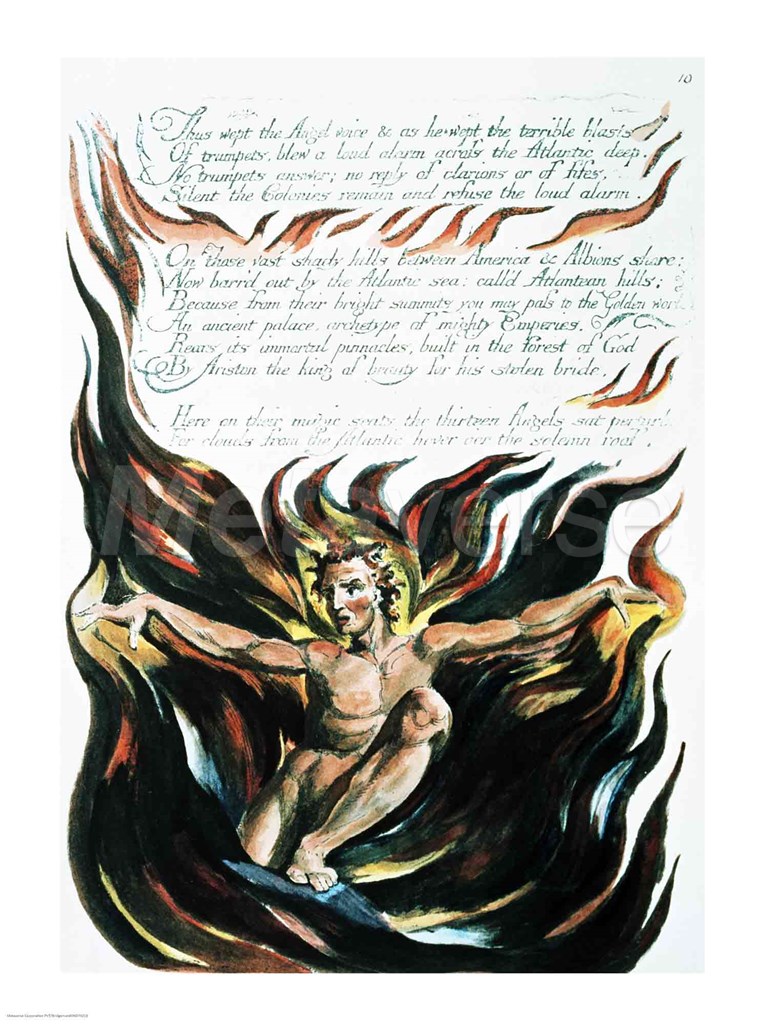 10
Thus wept the Angel voice & as he wept the terrible blasts
Of trumpets, blew a loud alarm across the Atlantic deep.
No trumpets answer; no reply of clarions or of fifes,
Silent the Colonies remain and refuse the loud alarm.
On those vast shady hills between America & Albions shore;
Now barr'd out by the Atlantic sea: call'd Atlantean hills;
Because from their bright summits you may pass to the Golden world
An ancient palace, archetype of mighty Emperies,
Rears its immortal pinnacles, built in the forest of God
By Ariston the king of beauty for his stolen bride,
Here on their magic seats the thirteen Angels sat perturb'd
For clouds from the Atlantic hover o'er the solemn roof.
Metaverse